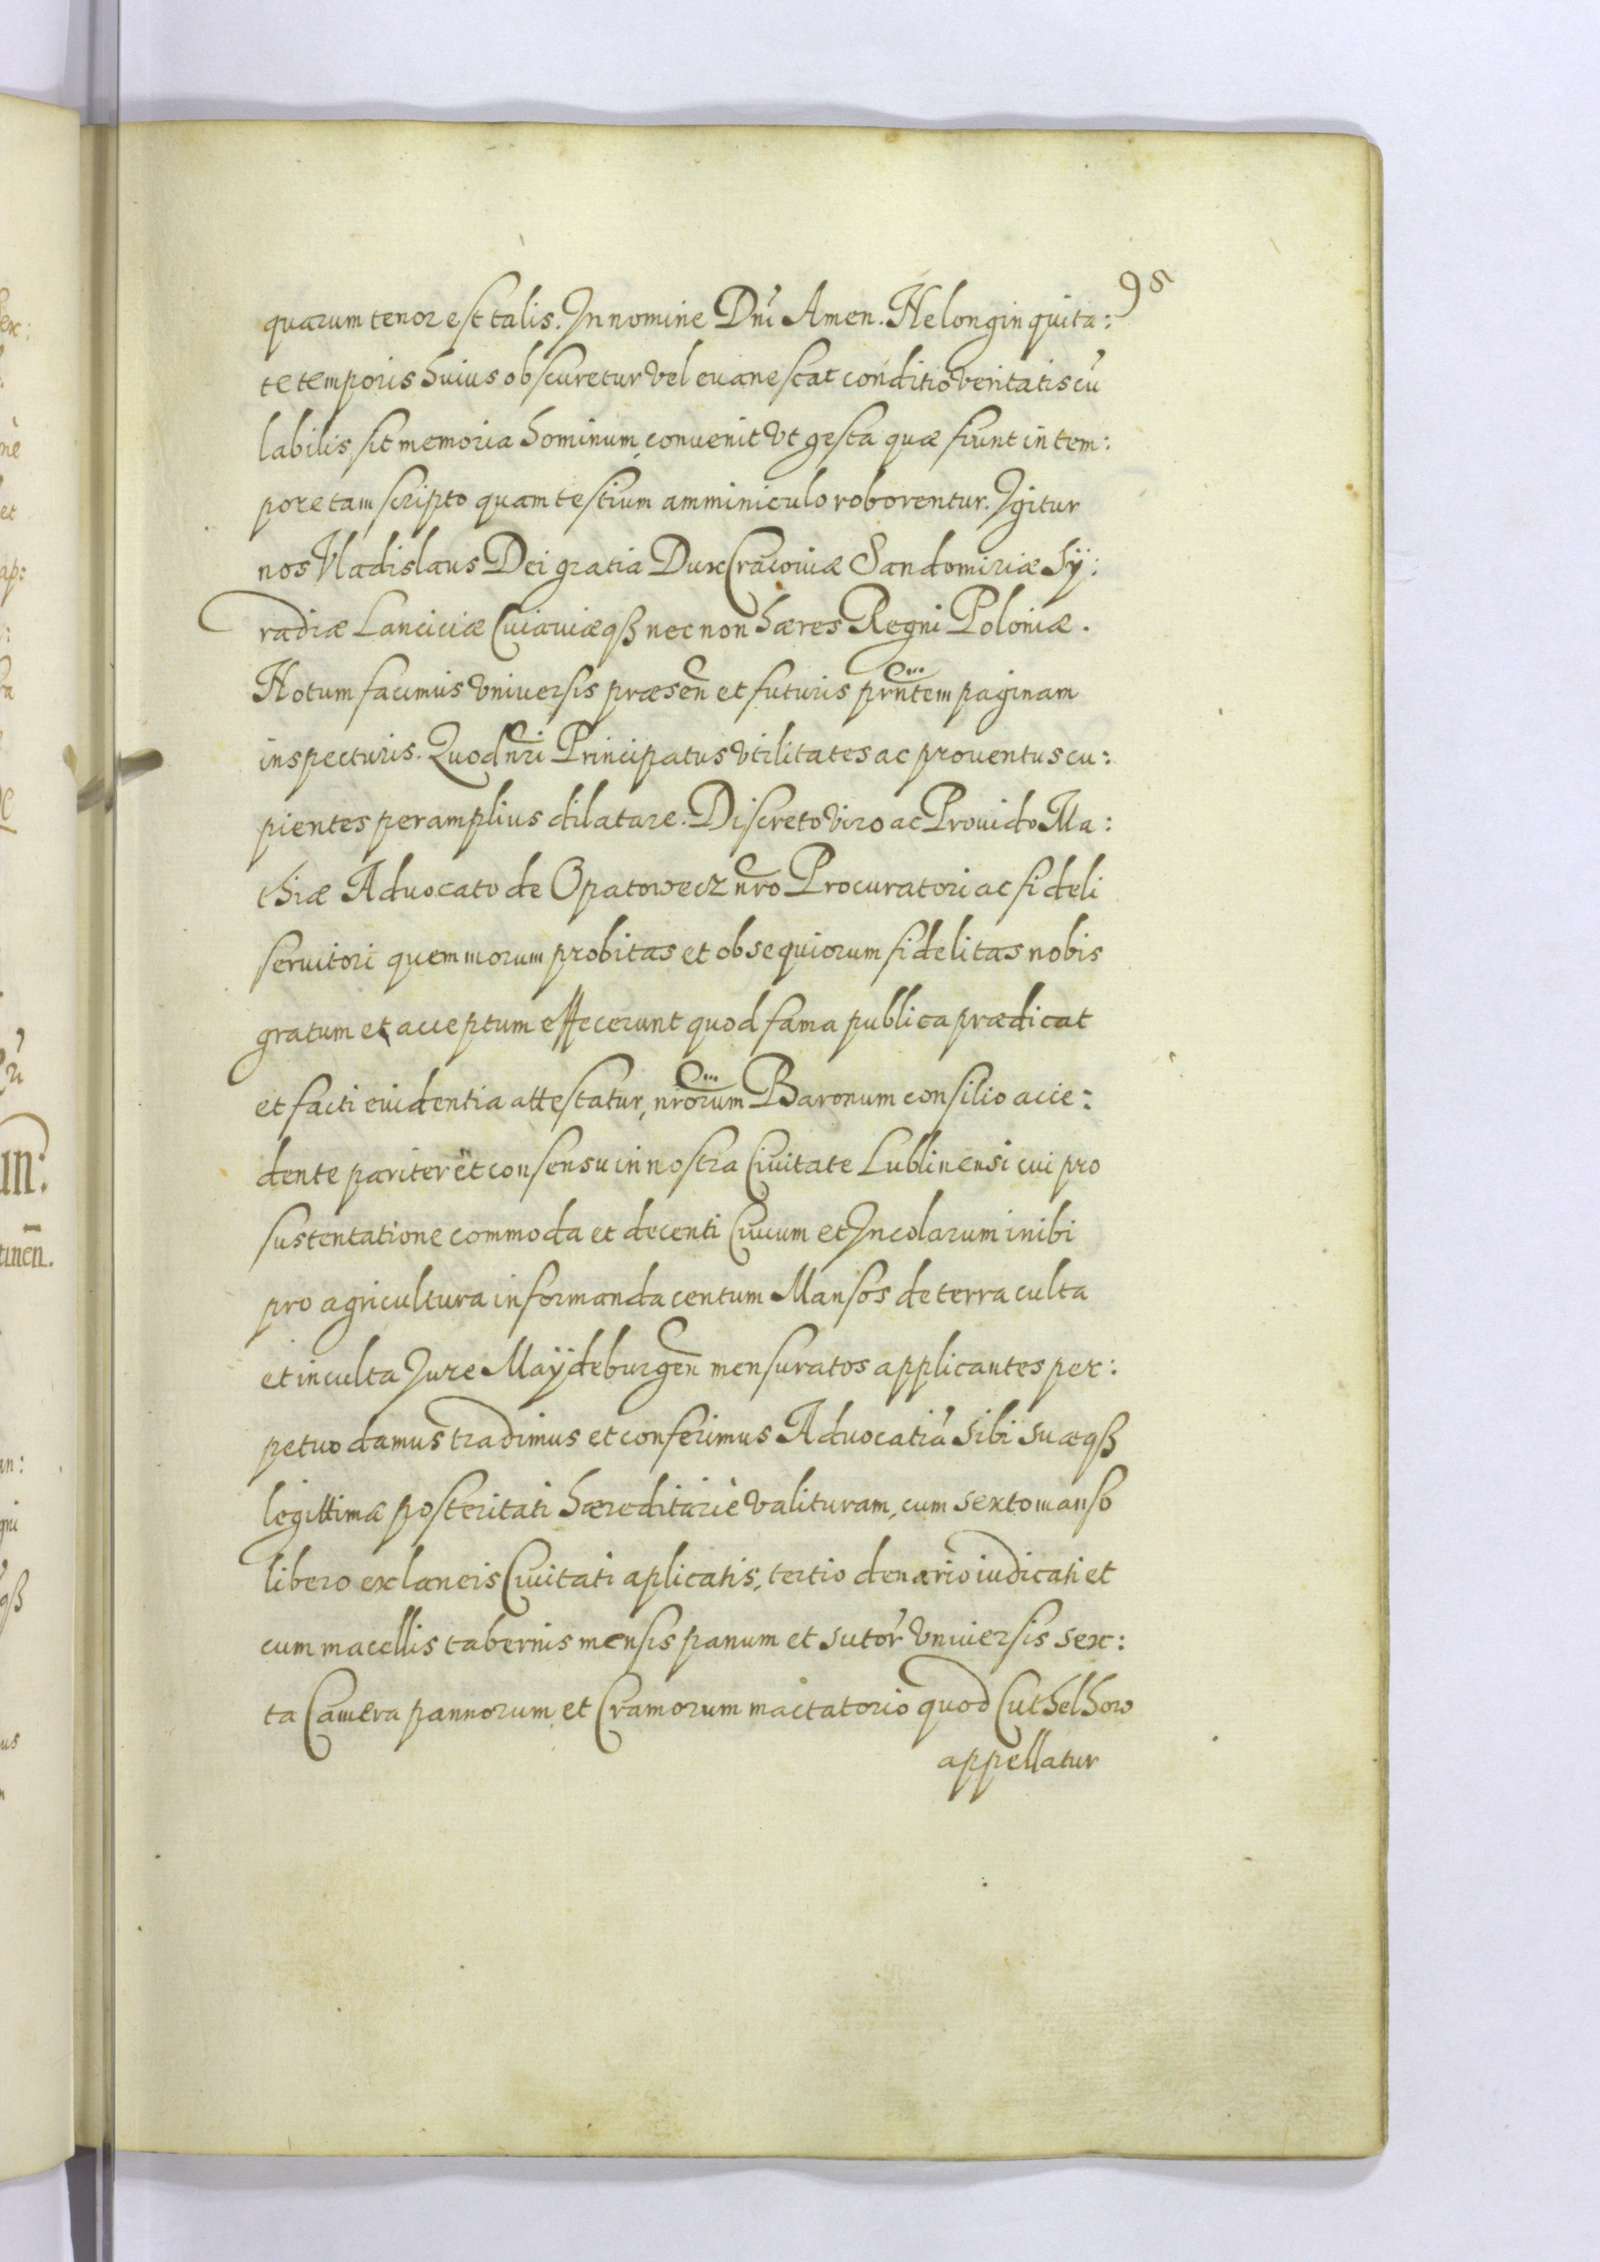 95
quarum tenor est talis. In nomine Dnĩ Amen. Ne longinquita:
te temporis huius obscuretur vel evanescat conditio veritatis cũ
labilis sit memoria hominum, convenit vt gesta quæ fiunt in tem:
pore tam scripto quam testium amminiculo roborentur. Igitur
nos Vladislaus Dei gratia Dux Cracoviæ Sandomiriæ Sÿ:
radiæ Lanciciæ Cuiaviæqß nec non hæres Regni Poloniæ.
Notum facimus vniversis præseñ et futuris prñtem paginam
inspecturis. Quod nr̃i Principatus vtilitates ac proventus cu:
pientes peramplius dilatare. Discreto viro ac Provido Ma:
thiæ Advocato de Opatowecz nr̃o Procuratori ac fideli
servitori quem morum probitas et obsequiorum fidelitas nobis
gratum et acceptum effecerunt quod fama publica prædicat
et facti evidentia attestatur, nr̃orum Baronum consilio acce:
dente pariter et consensu in nostra Civitate Lublinensi cui pro
sustentatione commoda et decenti Civium et Incolarum inibi
pro agricultura informanda centum Mansos de terra culta
et inculta Jure Maÿdeburgeñ mensuratos applicantes per:
petuo damus tradimus et conferimus Advocatiã sibi suæqß
legittimæ posteritati hæreditariè valituram, cum sexto manso
libero ex laneis Civitati aplicatis, tertio denario iudicati et
cum macellis tabernis mensis panum et sutor̃ vniversis sex:
ta Camera pannorum et Cramorum mactatorio quod Cuthelhow
appellatur